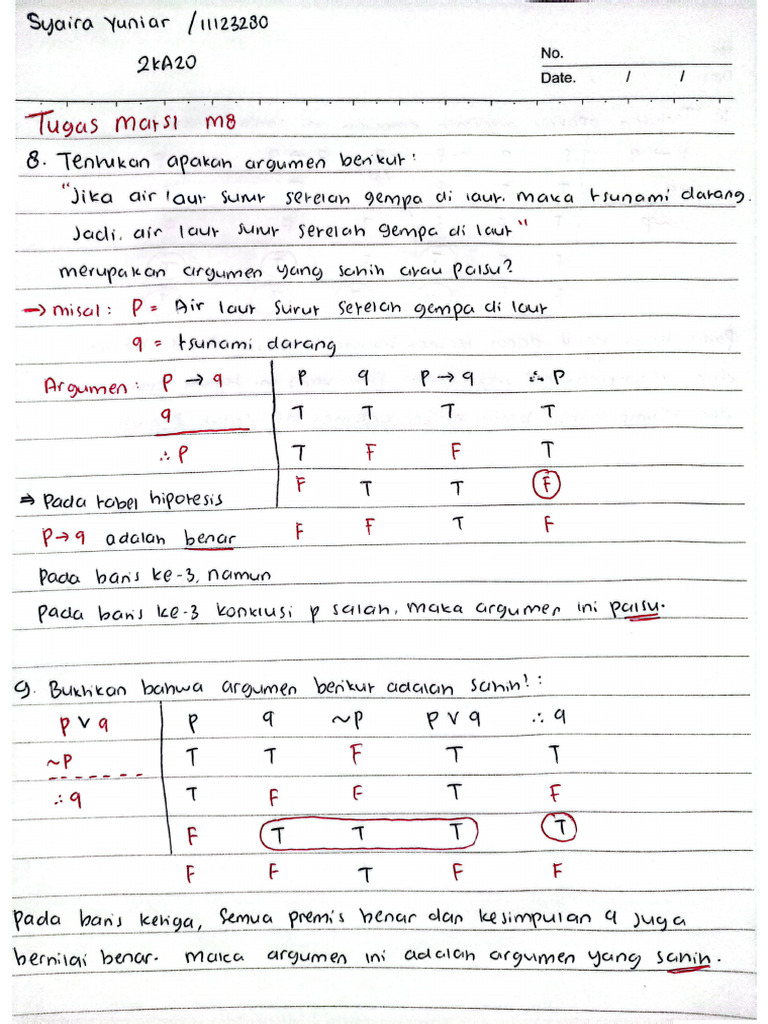 Syaira Yuniar / 11123280
2KA20
No.
Date. / /
Tugas Matsi M8
8. Tentukan apakah argumen berikut :
"Jika air laut surut setelah gempa di laut, maka tsunami datang.
Jadi, air laut surut setelah gempa di laut"
merupakan argumen yang sahih atau palsu?
→ misal : P = Air laut surut setelah gempa di laut
q = tsunami datang
Argumen : P → q
q
∴ P
P q P → q ∴ P
T T T T
T F F T
F T T F
F F T F
⇒ Pada tabel hipotesis
P → q adalah benar
Pada baris ke-3, namun
Pada baris ke-3 konklusi p salah, maka argumen ini palsu.
9. Buktikan bahwa argumen berikut adalah sahih! :
p ∨ q
~P
∴ q
P q ~P P ∨ q ∴ q
T T F T T
T F F T F
F T T T T
F F T F F
Pada baris ketiga, semua premis benar dan kesimpulan q juga
bernilai benar. maka argumen ini adalah argumen yang sahih.